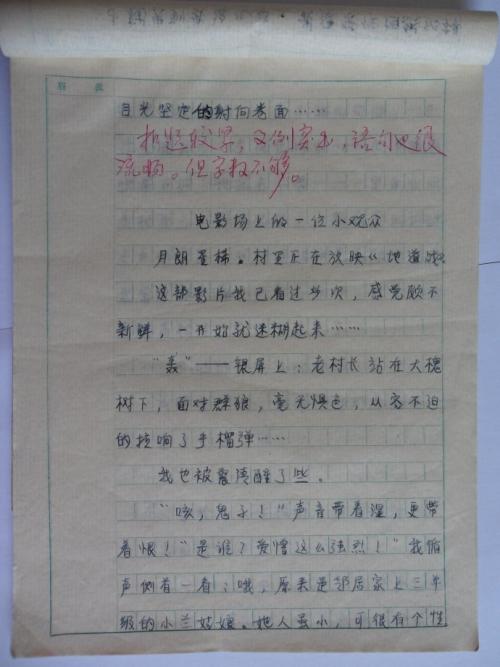 目光坚定的射向卷面……
扣题较早，文例突出，语句也很
流畅。但字数不够。
电影场上的一位小观众
月朗星稀。村里正在放映《地道战》
这部影片我已看过多次，感觉颇不
新鲜，一开始就迷糊起来……
“轰”——银屏上：老村长站在大槐
树下，面对群狼，毫无惧色，从容不迫
的拉响了手榴弹……
我也被震清醒了些。
“咳，鬼子！”声音带着涩，更带
着恨！“是谁？爱憎这么强烈！”我循
声侧首一看；哦，原来是邻居家上三年
级的小兰姑娘。她人虽小，可很有个性